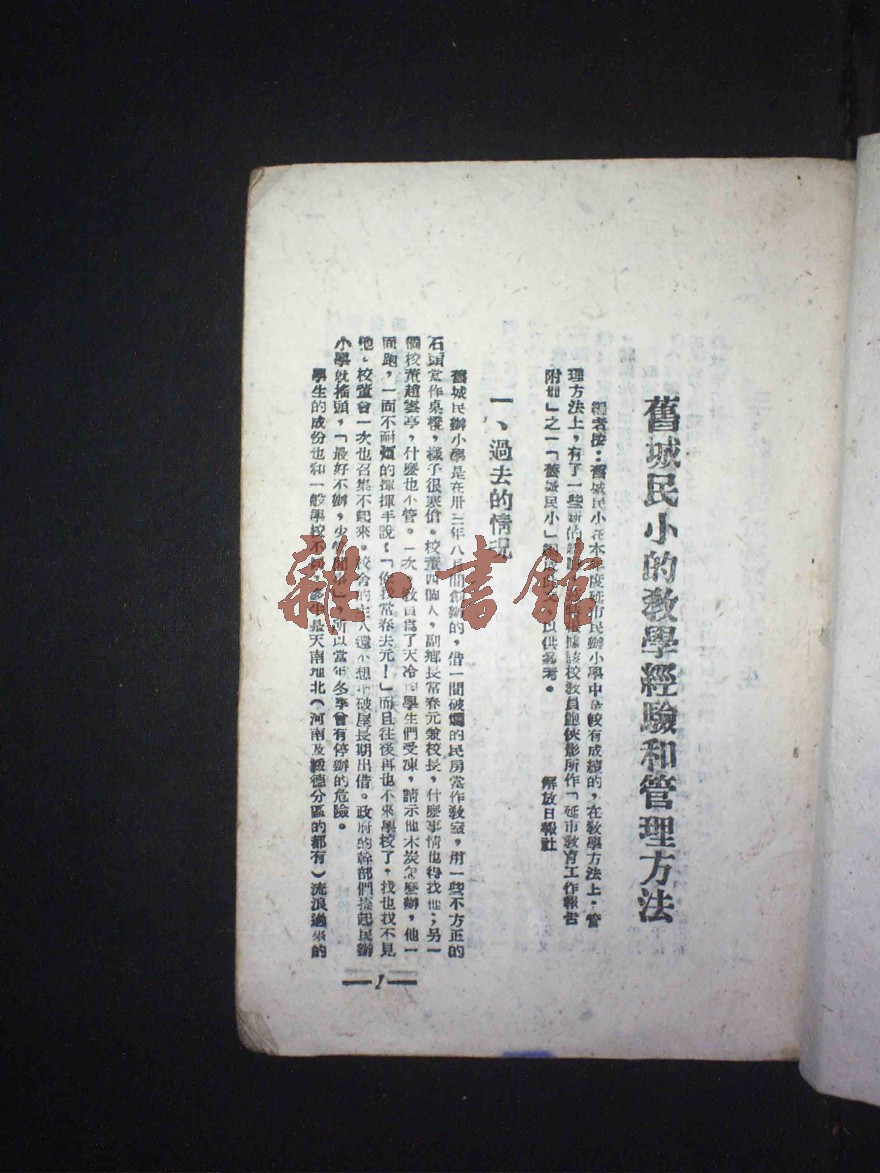 舊城民小的教學經驗和管理方法
編者按：舊城民小在本年度延市民辦小學中是較有成績的，在教學方法上，管
理方法上，有了一些新的經驗，根據該校教員鮑俠影所作「延市教育工作報告
附冊」之一「舊城民小」，以供參考。
解放日報社
一、過去的情況
舊城民辦小學是在卅三年八月間創辦的，借一間破爛的民房當作教室，用一些不方正的
石頭當作桌櫈，樣子很寒傖。校董四個人，副鄉長常春元兼校長，什麼事情也得找他；另一
個校董趙雲亭，什麼也不管。一次，教員爲了天冷，學生們受凍，請示他木炭怎麼辦，他一
面跑，一面不耐煩的揮揮手說：「你找常春元去！」而且往後再也不來學校了，找也找不見
他。校董會一次也召集不起來。校舍的主人還不想把破屋長期出借。政府的幹部們提起民辦
小學就搖頭，「最好不辦，少管閒事」，所以當年冬季曾有停辦的危險。
學生的成份也和一般學校不同，多半是天南地北（河南及綏德分區的都有）流浪過來的
1
雜·書館